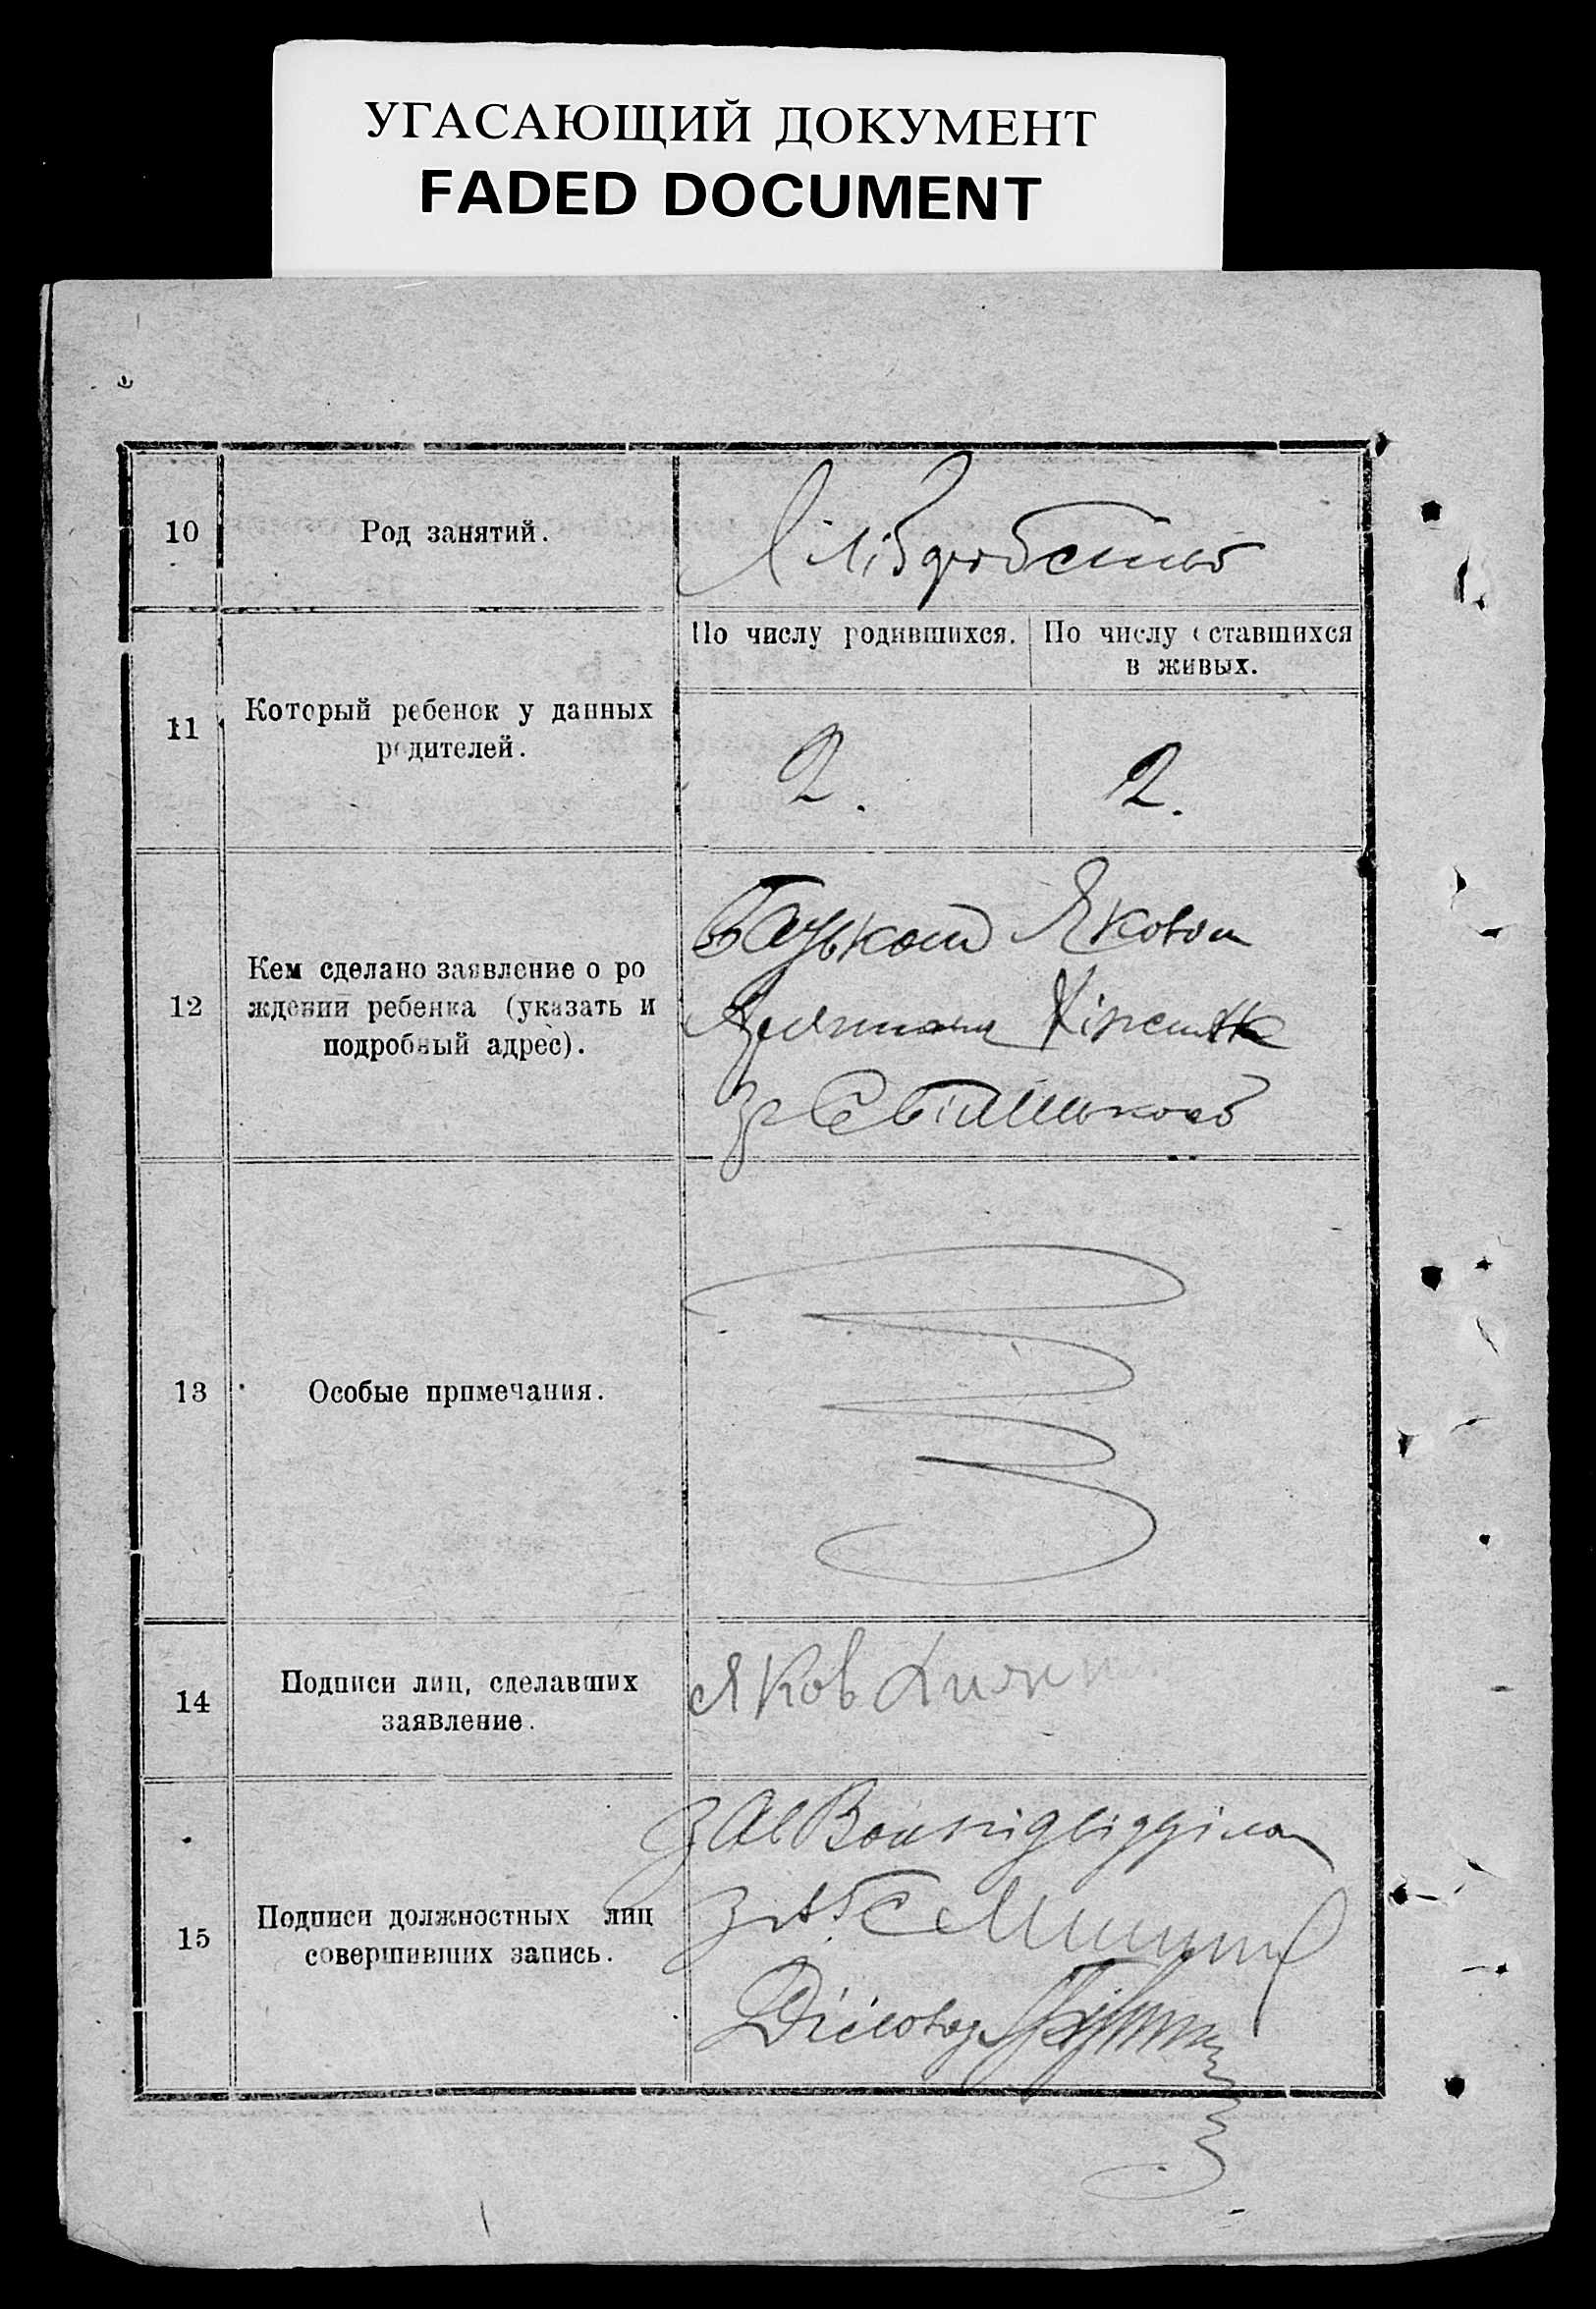 УГАСАЮЩИЙ ДОКУМЕНТ
FADED DOCUMENT
10
Род занятий.
Хліборобство
11
Который ребенок у данных
родителей.
По числу родившихся.
2.
По числу оставшихся
в живых.
2.
12
Кем сделано заявление о ро
ждении ребенка (указать и
подробный адрес).
Батьком Яковом
13
Особые примечания.
14
Подписи лиц, сделавших
заявление.
Яков
15
Подписи должностных лиц
совершивших запись.
Діловод